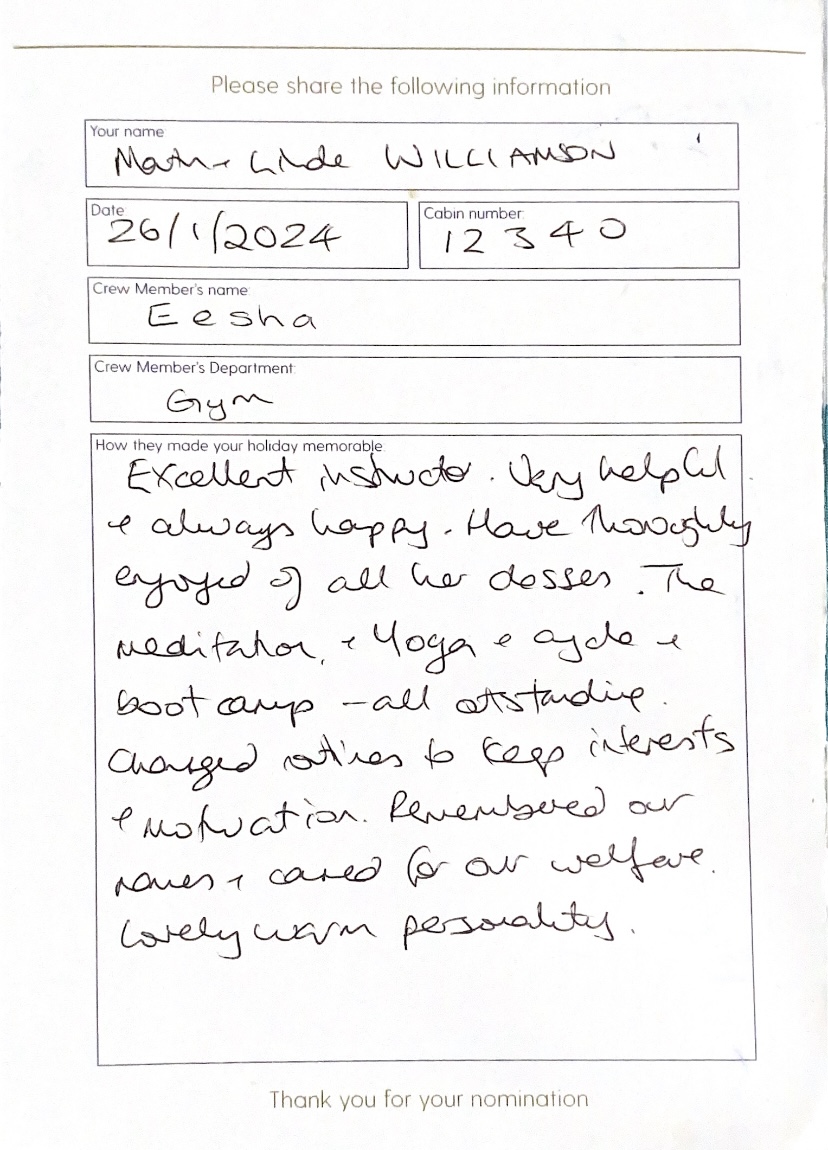 Please share the following information
Your name
+ WILLIAMSON
Date
26/1/2024
Cabin number:
12340
Crew Member's name:
Eesha
Crew Member's Department:
Gym
How they made your holiday memorable:
Excellent instructor. Very helpful
+ always happy. Have thoroughly
enjoyed of all her classes. The
meditation, + Yoga + cycle +
boot camp - all outstanding.
Changed routines to keep interests
+ motivation. Remembered our
names + cared for our welfare.
Lovely warm personality.
Thank you for your nomination